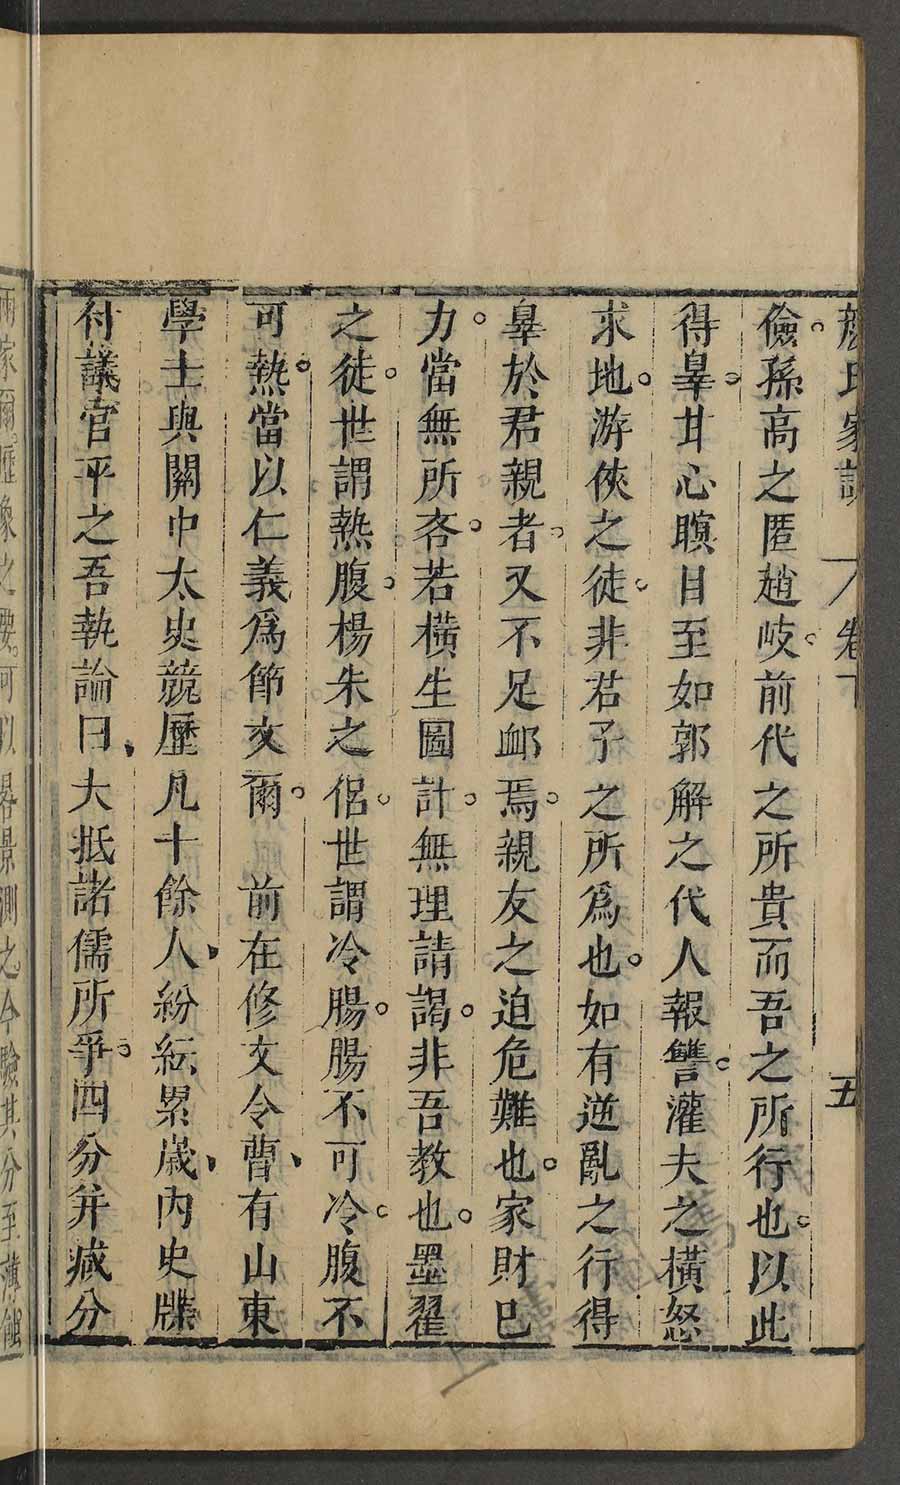 顏氏家訓 卷下 五
儉孫高之匿趙岐前代之所貴而吾之所行也以此
得辠甘心瞑目至如郭解之代人報讐灌夫之橫怒
求地游俠之徒非君子之所爲也如有逆亂之行得
辠於君親者又不足卹焉親友之迫危難也家財已
力當無所吝若橫生圖計無理請謁非吾教也墨翟
之徒世謂熱腹楊朱之侶世謂冷腸腸不可冷腹不
可熱當以仁義爲節文爾 前在修文令曹有山東
學士與關中太史競歷凡十餘人紛紜累歲內史牒
付議官平之吾執論曰大抵諸儒所爭四分并臧分
兩家爾歷象之要可以晷景測之今驗其分至薄蝕